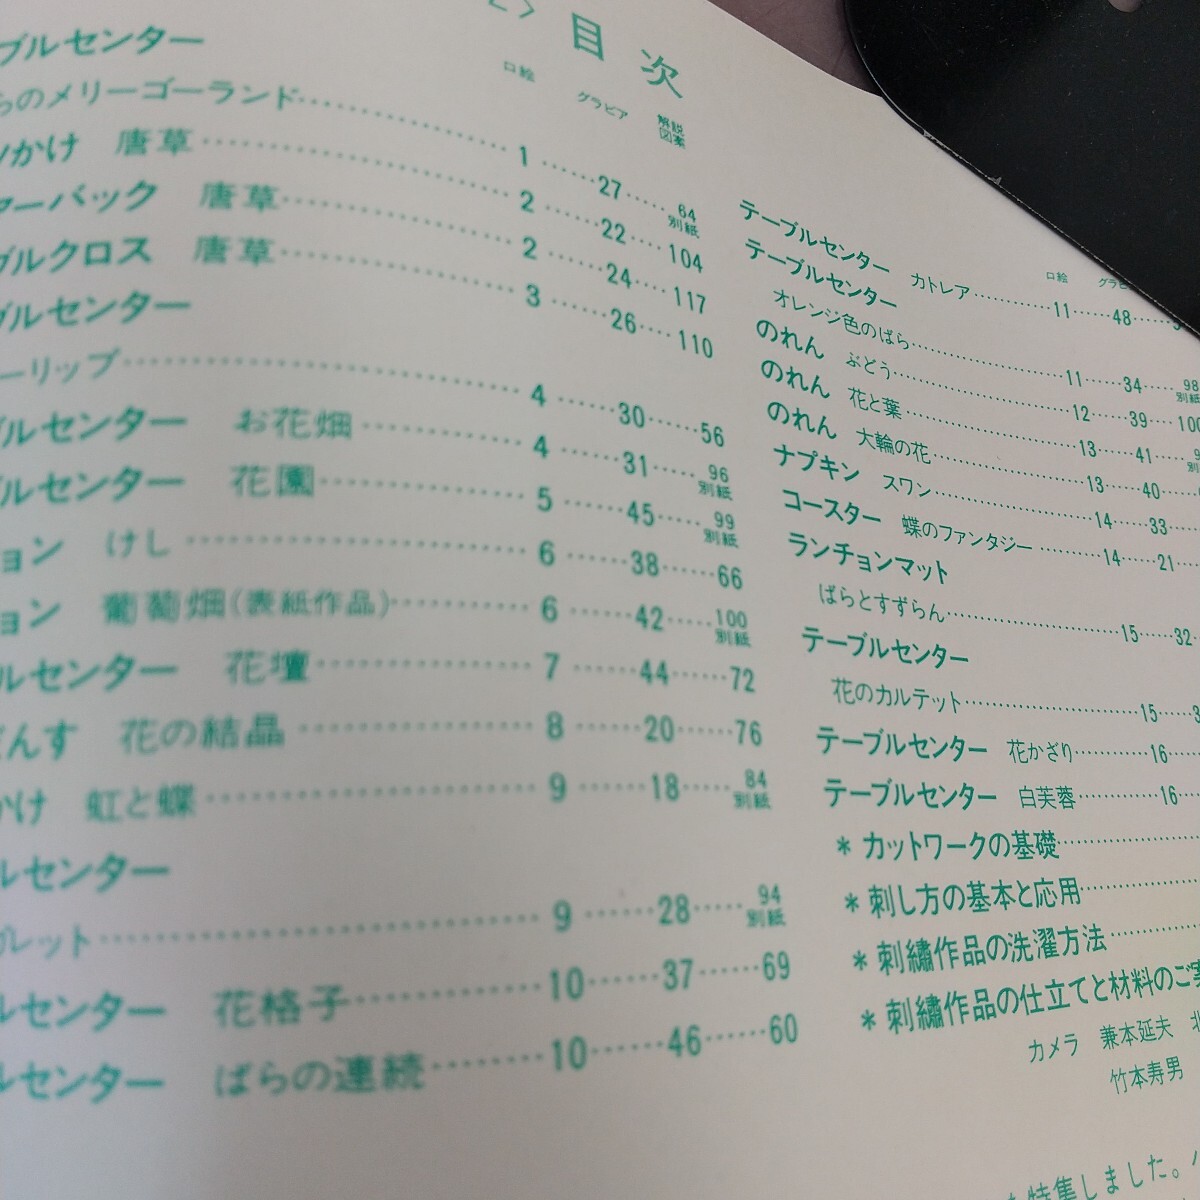 目次
口絵 グラビア 解説図案
ブルセンター
らのメリーゴーランド 1 27 64 別紙
かけ 唐草 2 22 104
ターバック 唐草 2 24 117
ブルクロス 唐草 3 26 110
ブルセンター
ーリップ 4 30 56
ブルセンター お花畑 4 31 96 別紙
ブルセンター 花園 5 45 99 別紙
ョン けし 6 38 66
ョン 葡萄畑(表紙作品) 6 42 100 別紙
ルセンター 花壇 7 44 72
んす 花の結晶 8 20 76
かけ 虹と蝶 9 18 84 別紙
ルセンター
ガレット 9 28 94 別紙
ルセンター 花格子 10 37 69
ルセンター ばらの連続 10 46 60
口絵 グラビ
テーブルセンター カトレア 11 48
テーブルセンター
オレンジ色のばら 11 34 98 別紙
のれん ぶどう 12 39 100
のれん 花と葉 13 41
のれん 大輪の花 13 40
ナプキン スワン 14 33
コースター 蝶のファンタジー 14 21
ランチョンマット
ばらとすずらん 15 32
テーブルセンター
花のカルテット 15
テーブルセンター 花かざり 16
テーブルセンター 白芙蓉 16
*カットワークの基礎
*刺し方の基本と応用
*刺繍作品の洗濯方法
*刺繍作品の仕立てと材料のご案
カメラ 兼本延夫 北
竹本寿男
特集しました。